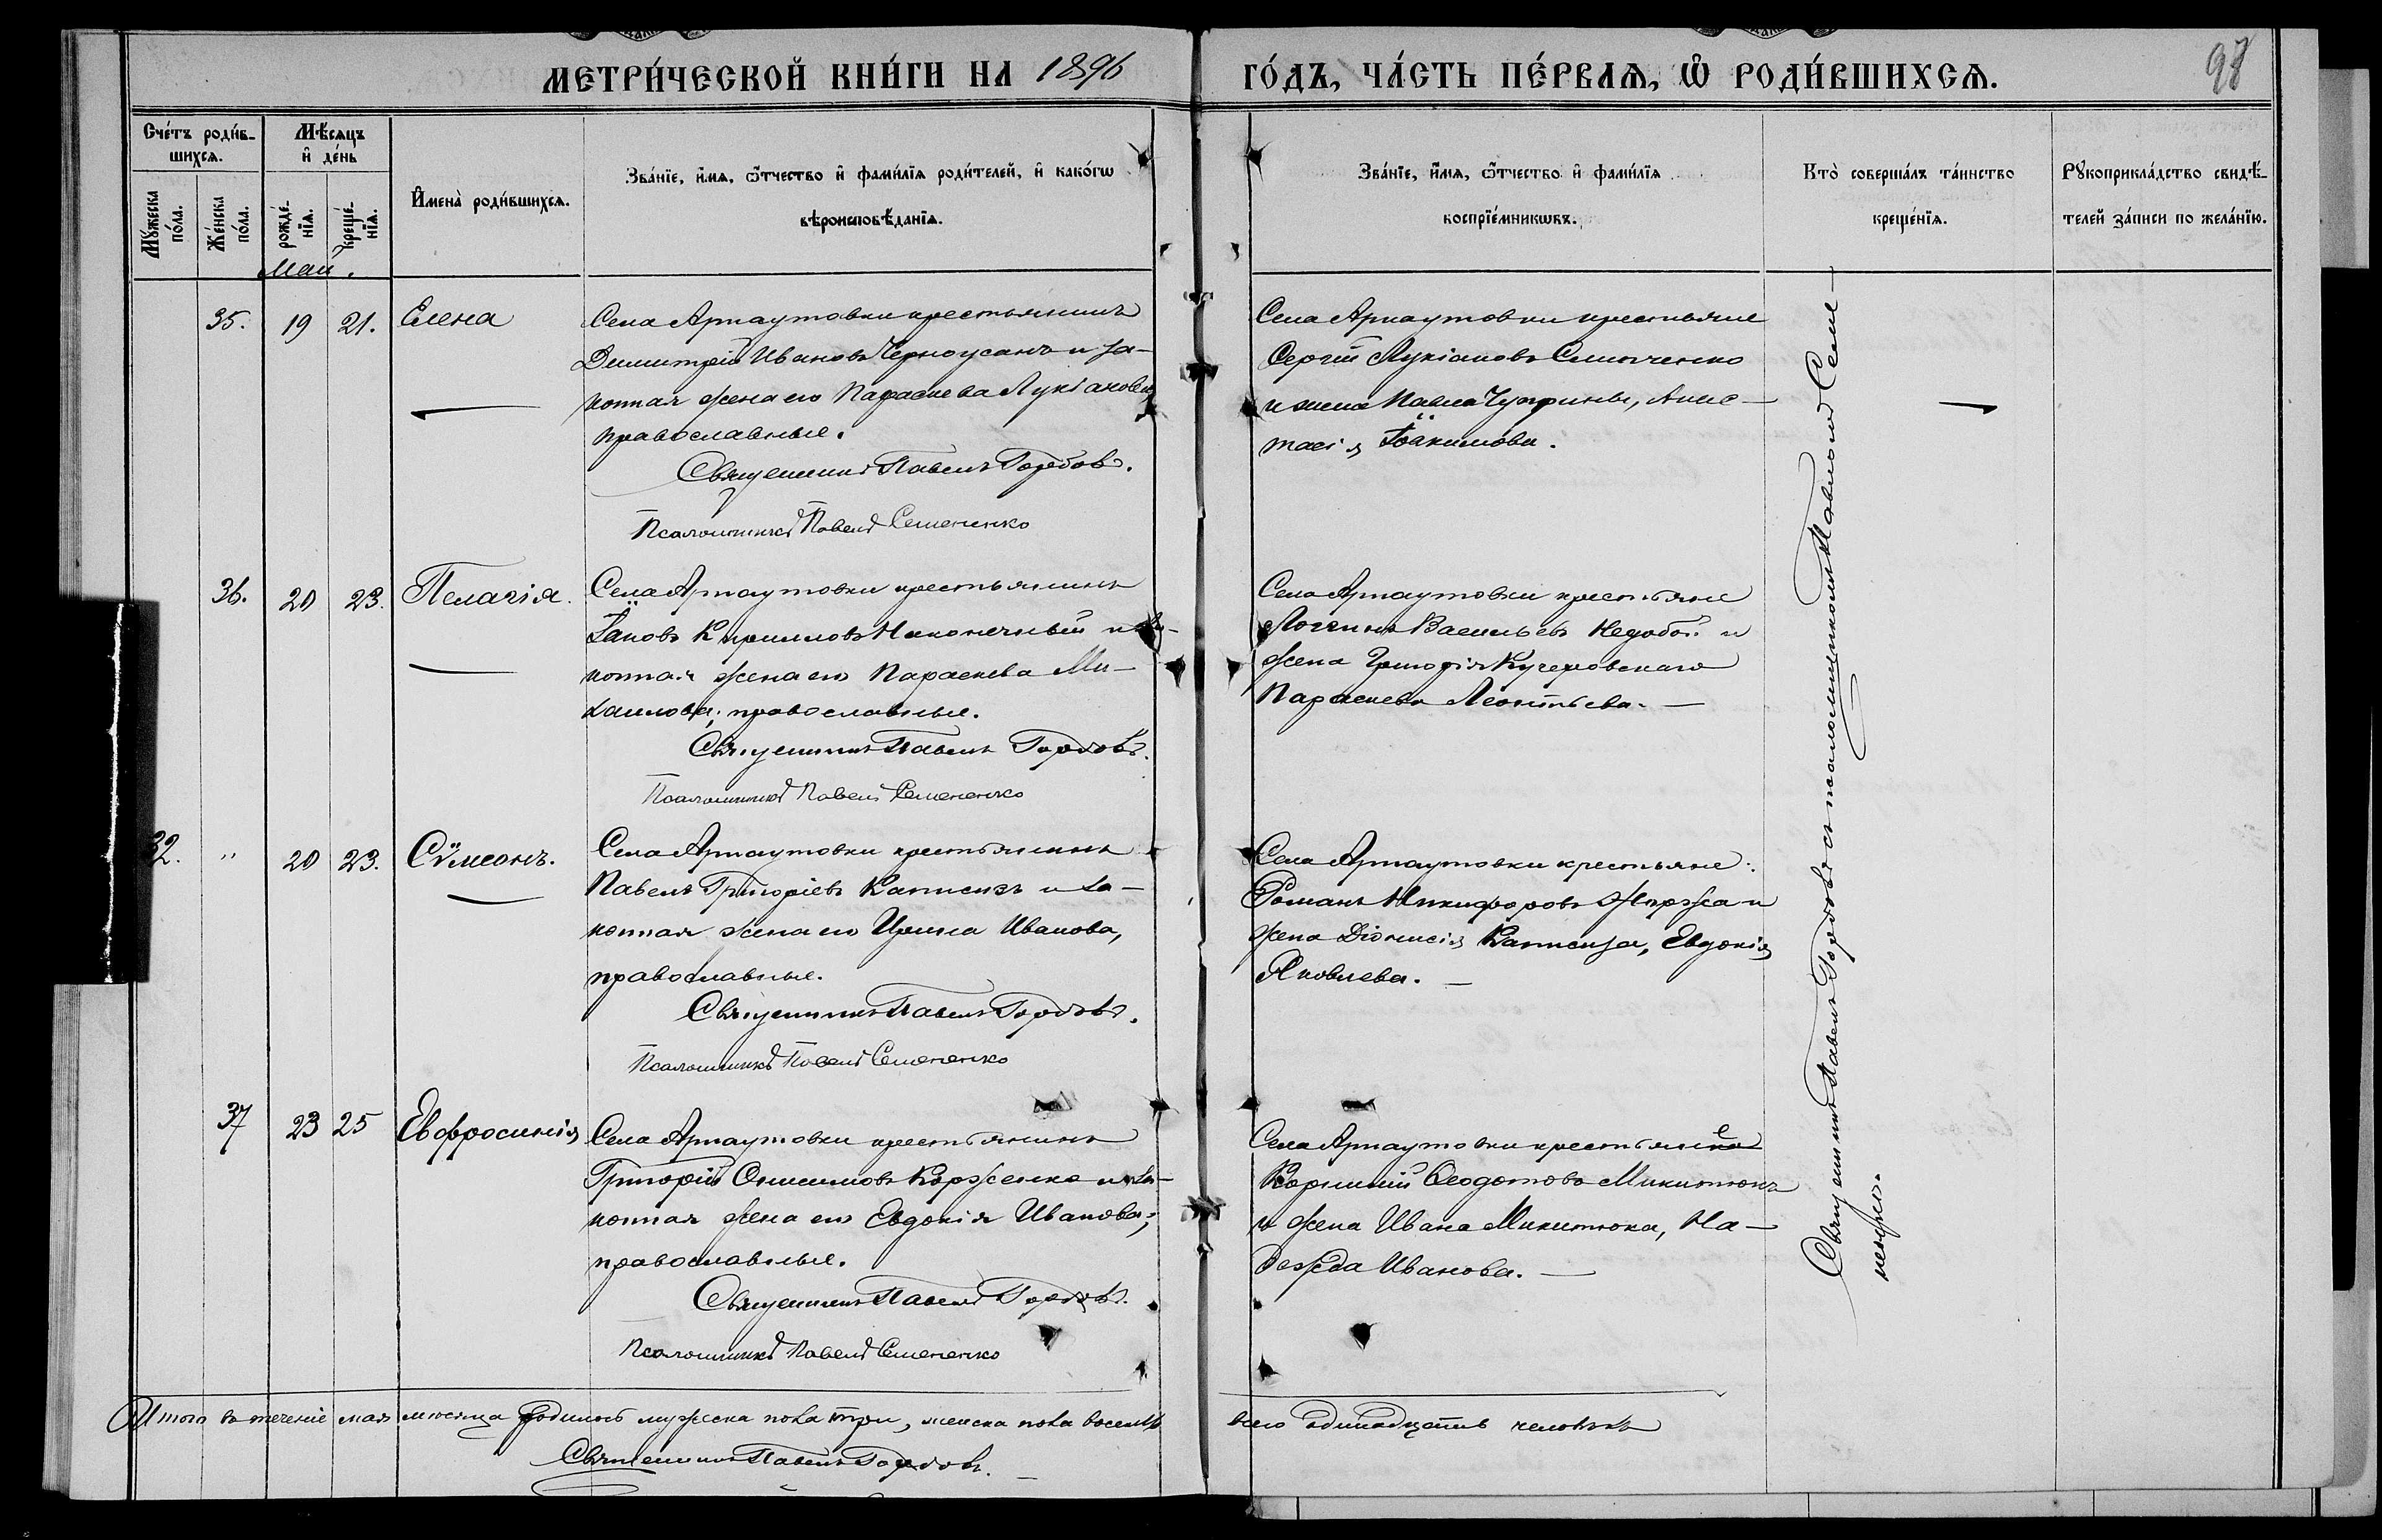 МЕТРИ́ЧЕСКОЙ КНИ́ГИ НА 1896 ГО́ДЪ, ЧА́СТЬ ПЕ́РВАЯ, Ѿ РОДИ́ВШИХСЯ. 98
Сче́тъ роди́в-
шихся.
Мѣ́сяцъ
и҆ де́нь
Му́жеска
по́ла.
Же́нска
по́ла.
рожде́-
нїя.
креще́-
нїя.
И҆мена̀ роди́вшихся.
Зва́нїе, и҆́мя, ѻ҆́тчество и҆ фами́лїя роди́телей, и҆ како́гѡ
вѣроисповѣ́данїя.
Зва́нїе, и҆́мя, ѻ҆́тчество и҆ фами́лїя
воспрїе́мникѡвъ.
Кто̀ соверша́лъ та́инство
креще́нїя.
Рꙋкоприкла́дство свидѣ́-
телей за́писи по жела́нїю.
Май.
35. 19 21. Елена
Села Арнаутовки крестьянинъ
Димитрій Ивановъ Черноусанъ и за-
конная жена его Параскева Лукіанова
православные.
Священникъ Павелъ Гордовъ.
Псаломщикъ Павелъ Семененко
Села Арнаутовки крестьяне
Сергій Лукіановъ
и жена Павла Чуприны, Анас-
тасія Іоакимова.
36. 20 23. Пелагія.
Села Арнаутовки крестьянинъ
Іаковъ Кирилловъ Наконечный и за-
конная жена его Параскева Ми-
хаилова, православные.
Священникъ Павелъ Гордовъ.
Псаломщикъ Павелъ Семененко
Села Арнаутовки крестьяне
Логгинъ Васильевъ и
жена Григорія Кучеровскаго
Параскева Леонтьева. —
32. " 20 23. Сѵмеонъ.
Села Арнаутовки крестьянинъ
Павелъ Григоріевъ и за-
конная жена его Ирина Иванова,
православные.
Священникъ Павелъ Гордовъ.
Псаломщикъ Павелъ Семененко
Села Арнаутовки крестьяне:
Романъ Никифоровъ и
жена Діонисія Евдокія
Яковлева. —
37 23 25 Евфросинія
Села Арнаутовки крестьянинъ
Григорій Онисимовъ Корженко и за-
конная жена его Евдокія Иванова;
православные.
Священникъ Павелъ Гордовъ.
Псаломщикъ Павелъ Семененко
Села Арнаутовки крестьяне
Корнилій Ѳеодотовъ Микитюкъ
и жена Ивана Микитюка, На-
дежда Иванова. —
Священникъ Павелъ Гордовъ съ псаломщикомъ Павломъ Семе-
ненко.
Итого въ теченіе мая мѣсяца родилось мужеска пола три, женска пола восемь всего одинадцать человѣкъ
Священникъ Павелъ Гордовъ. —